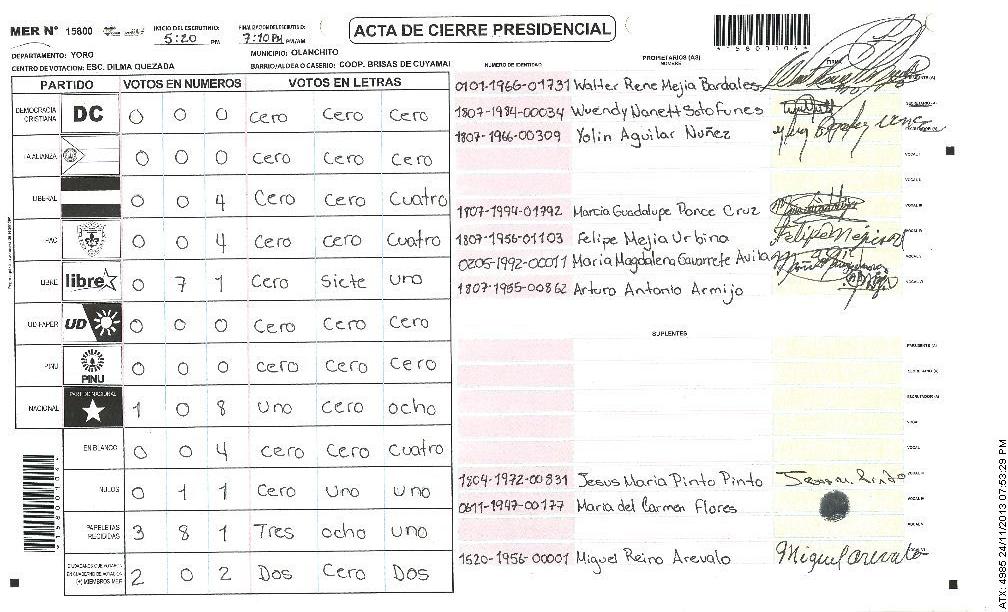 MER N° 15800
INICIO DEL ESCRUTINIO: 5:20 PM
FINALIZACION DEL ESCRUTINIO: 7:10 PM PM/AM
ACTA DE CIERRE PRESIDENCIAL
DEPARTAMENTO: YORO
MUNICIPIO: OLANCHITO
CENTRO DE VOTACION: ESC. DILMA QUEZADA
BARRIO/ALDEA O CASERIO: COOP. BRISAS DE CUYAMAI
PARTIDO VOTOS EN NUMEROS VOTOS EN LETRAS
DEMOCRACIA CRISTIANA DC 0 0 0 cero cero cero
LA ALIANZA 0 0 0 cero cero cero
LIBERAL 0 0 4 cero cero cuatro
PAC 0 0 4 cero cero cuatro
LIBRE libre 0 7 1 cero siete uno
UD FAPER UD 0 0 0 cero cero cero
PINU PINU 0 0 0 cero cero cero
NACIONAL PARTIDO NACIONAL 1 0 8 uno cero ocho
EN BLANCO 0 0 4 cero cero cuatro
NULOS 0 1 1 cero uno uno
PAPELETAS RECIBIDAS 3 8 1 Tres ocho uno
2 0 2 Dos cero Dos
NUMERO DE IDENTIDAD
PROPIETARIOS (AS)
NOMBRE
0101-1966-01731 Walter Rene Mejia Bardales
1807-1984-00034 Wuendy Nanett Soto Funes
1807-1966-00309 Yolin Aguilar Nuñez
1807-1994-01792 Marcia Guadalupe Ponce Cruz
1807-1956-01103 Felipe Mejia Urbina
0205-1992-00011 Maria Magdalena Gavarrete Avila
1807-1955-00862 Arturo Antonio Armijo
SUPLENTES
1804-1972-00831 Jesus Maria Pinto Pinto
0611-1947-00177 Maria del Carmen Flores
1520-1956-00001 Miguel Reino Arevalo
Miguel arevalo
ATX: 4985 24/11/2013 07:53:29 PM